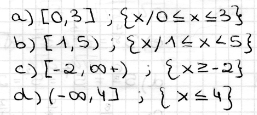 a) [0,3] ; {x/0≤x≤3}
b) [1,5) ; {x/1≤x<5}
c) [-2,∞+) ; {x≥-2}
d) (-∞,4] ; {x≤4}